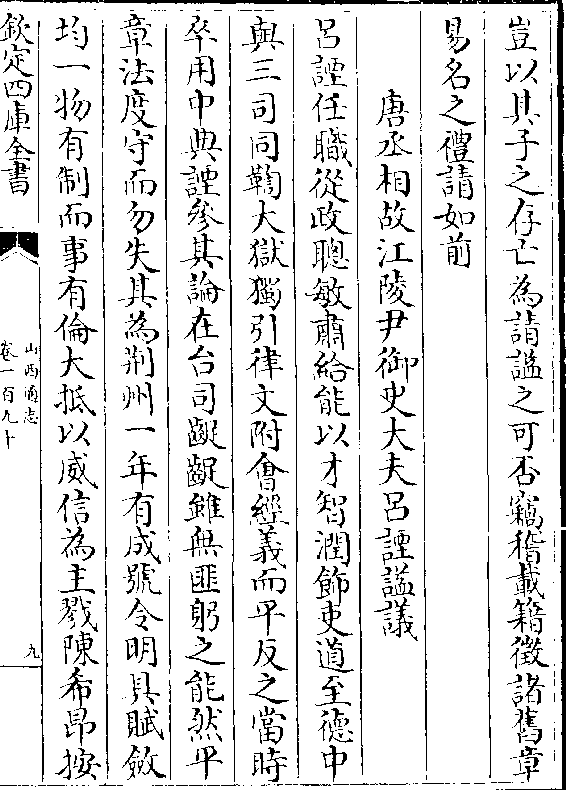 豈以其子之存亡為請諡之可否竊稽載籍徵諸舊章
易名之禮請如前
唐丞相故江陵尹御史大夫呂諲諡議
呂諲任職從政聰敏肅給能以才智潤飾吏道至德中
與三司同鞫大獄獨引律文附會經義而平反之當時
卒用中典諲參其論在台司齪齪雖無匪躬之能然平
章法度守而勿失其為荆州一年有成號令明具賦斂
均一物有制而事有倫大抵以威信為主戮陳希昂按
欽定四庫全書
山西通志
卷一百九十
九